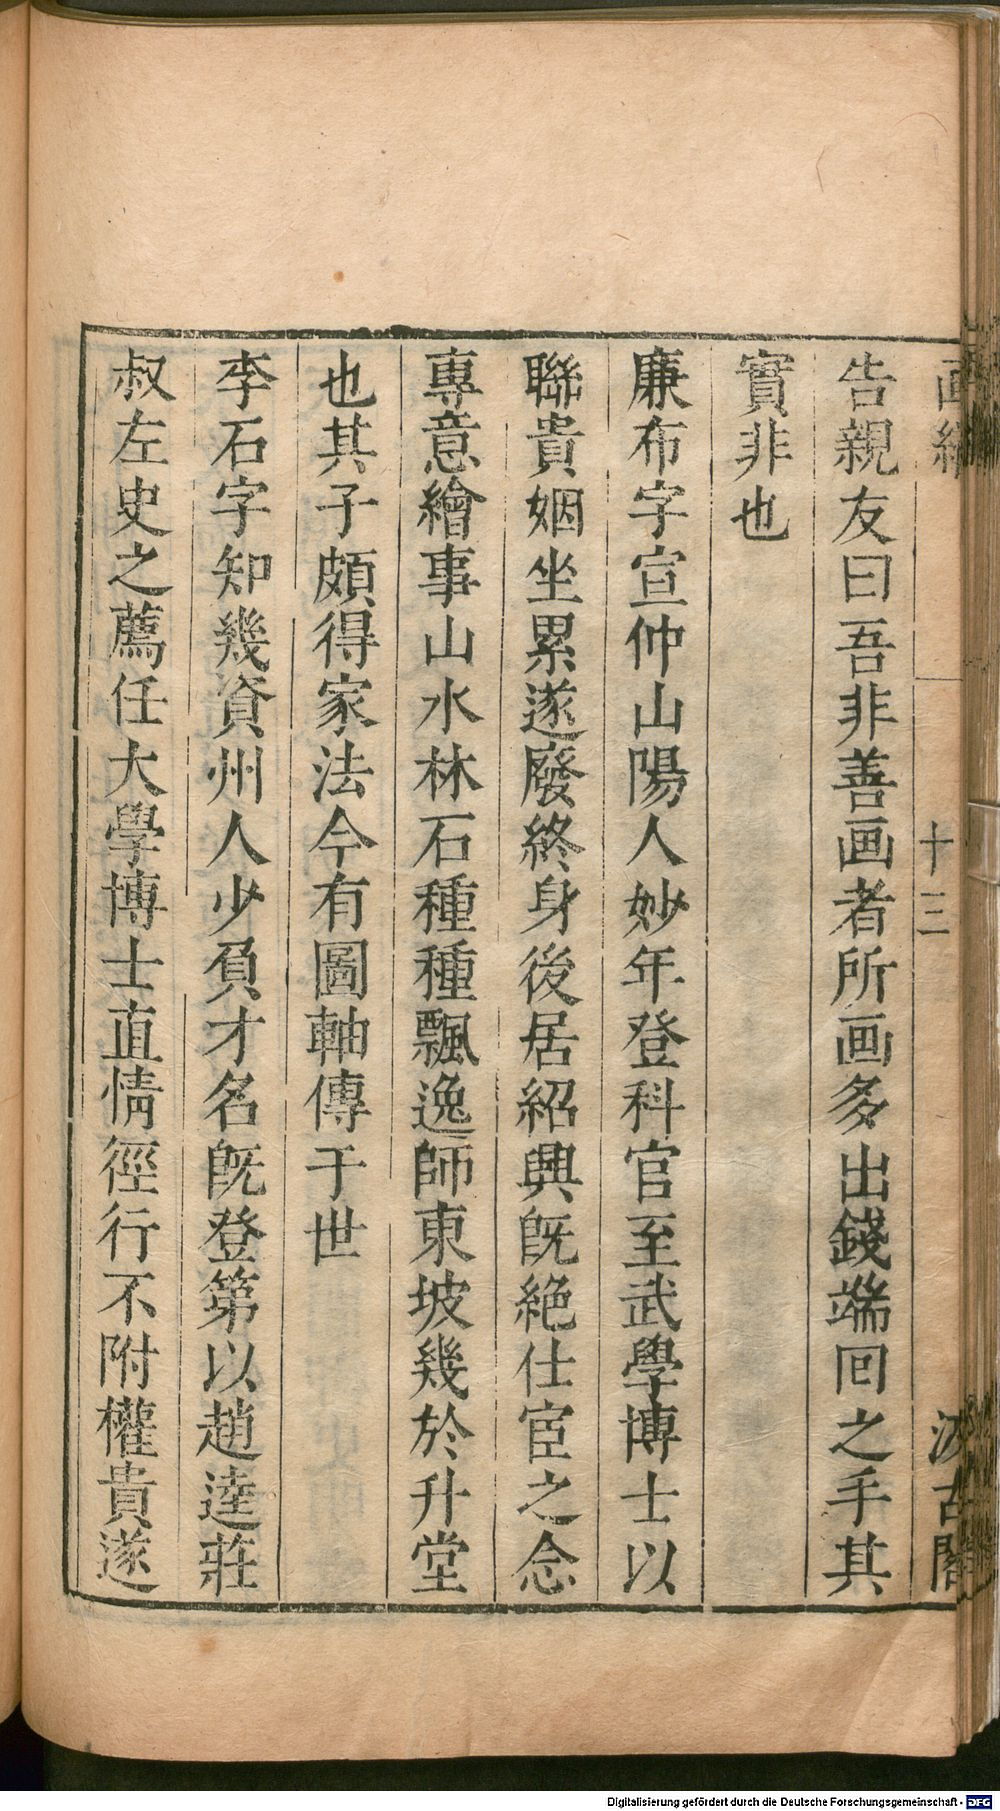 告親友曰吾非善画者所画多出錢端回之手其
實非也
廉布字宣仲山陽人妙年登科官至武學博士以
聯貴姻坐累遂廢終身後居紹興旣絶仕宦之念
專意繪事山水林石種種飄逸師東坡幾於升堂
也其子頗得家法今有圖軸傳于世
李石字知幾資州人少負才名旣登第以趙逵莊
叔左史之薦任大學博士直情徑行不附權貴遂
十三
汲古閣
Digitalisierung gefördert durch die Deutsche Forschungsgemeinschaft - DFG